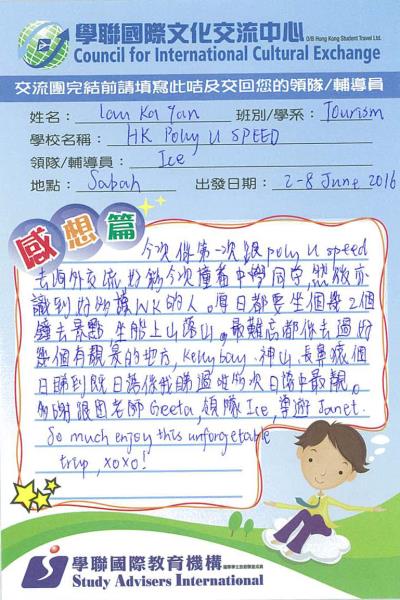 學聯國際文化交流中心 O/B Hong Kong Student Travel Ltd.
Council for International Cultural Exchange
交流團完結前請填寫此咭及交回您的領隊/輔導員
姓名： Lau Ka Yan 班別/學系： Tourism
學校名稱： HK Poly U SPEED
領隊/輔導員： Ice
地點： Sabah 出發日期： 2-8 June 2016
感想篇
今次係第一次跟poly U speed
去海外交流，好彩今次撞着中學同學，然後亦
識到好多讀WK的人。每日都要坐個幾2個
鐘去景點 坐船上山落山。最難忘都係去過好
幾個有靚景的地方，Kelly bay，神山，長鼻猿個
日睇到既日落係我睇過咁多次日落中最靚。
多謝跟團老師Geeta，領隊Ice，導遊Janet.
So much enjoy this unforgetable
trip, xoxo!
學聯國際教育機構
Study Advisers International